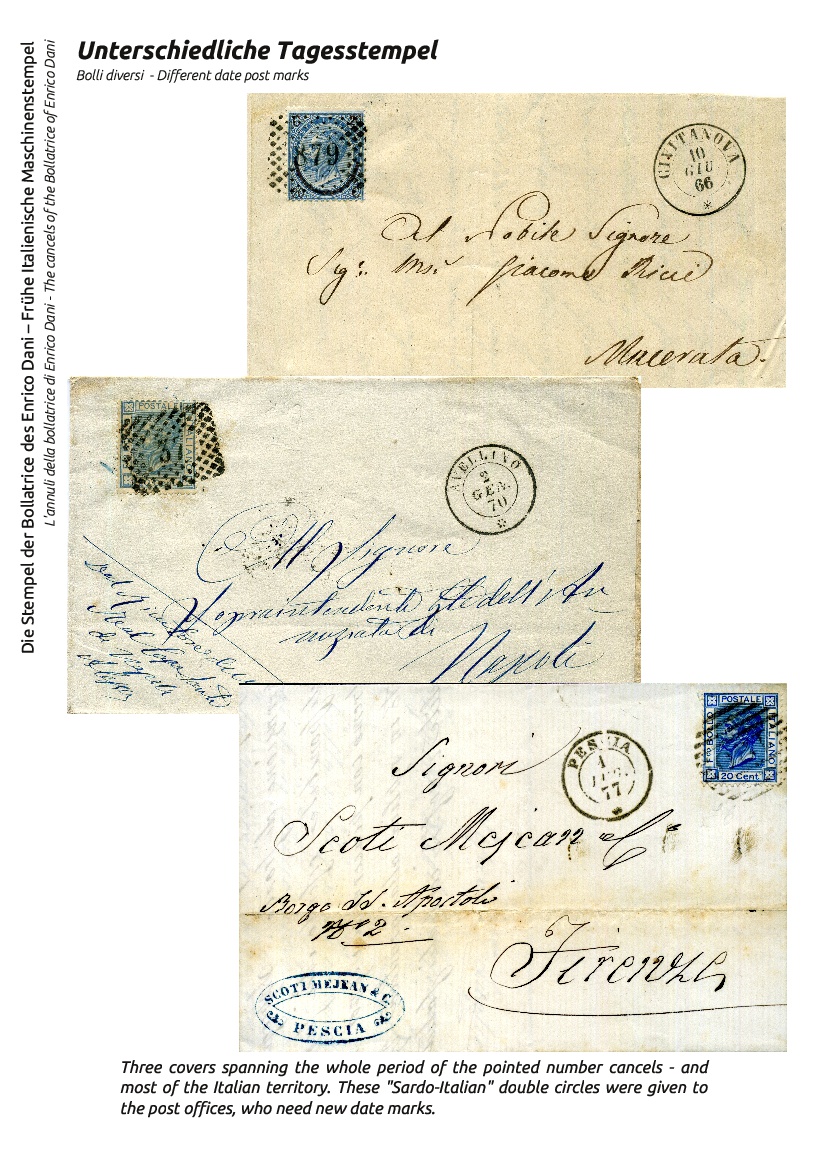 Unterschiedliche Tagesstempel
Bolli diversi - Different date post marks
Die Stempel der Bollatrice des Enrico Dani – Frühe Italienische Maschinenstempel
L'annuli della bollatrice di Enrico Dani - The cancels of the Bollatrice of Enrico Dani
879
CIVITANOVA
10
GIU
66
Al Nobile Signore
Giacomo Ricci
Macerata.
POSTALE
ITALIANO
AVELLINO
2
GEN.
70
All Signore
Napoli
PESCIA
1
77
Fco BOLLO
POSTALE
ITALIANO
20 Cent.
Signori
Scoti Mejean & Co
Borgo SS. Apostoli
No 2.
Firenze
SCOTI MEJEAN & C.
PESCIA
Three covers spanning the whole period of the pointed number cancels - and
most of the Italian territory. These "Sardo-Italian" double circles were given to
the post offices, who need new date marks.